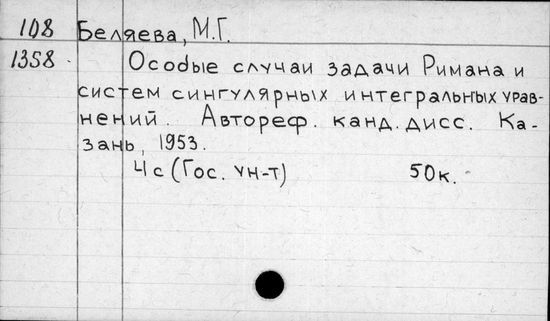 108 Беляева, М.Г.
1358. Особые случаи задачи Римана и
систем сингулярных интегральных урав-
нений. Автореф. канд. дисс. Ка-
зань, 1953.
4 с (Гос. ун-т) 50к.